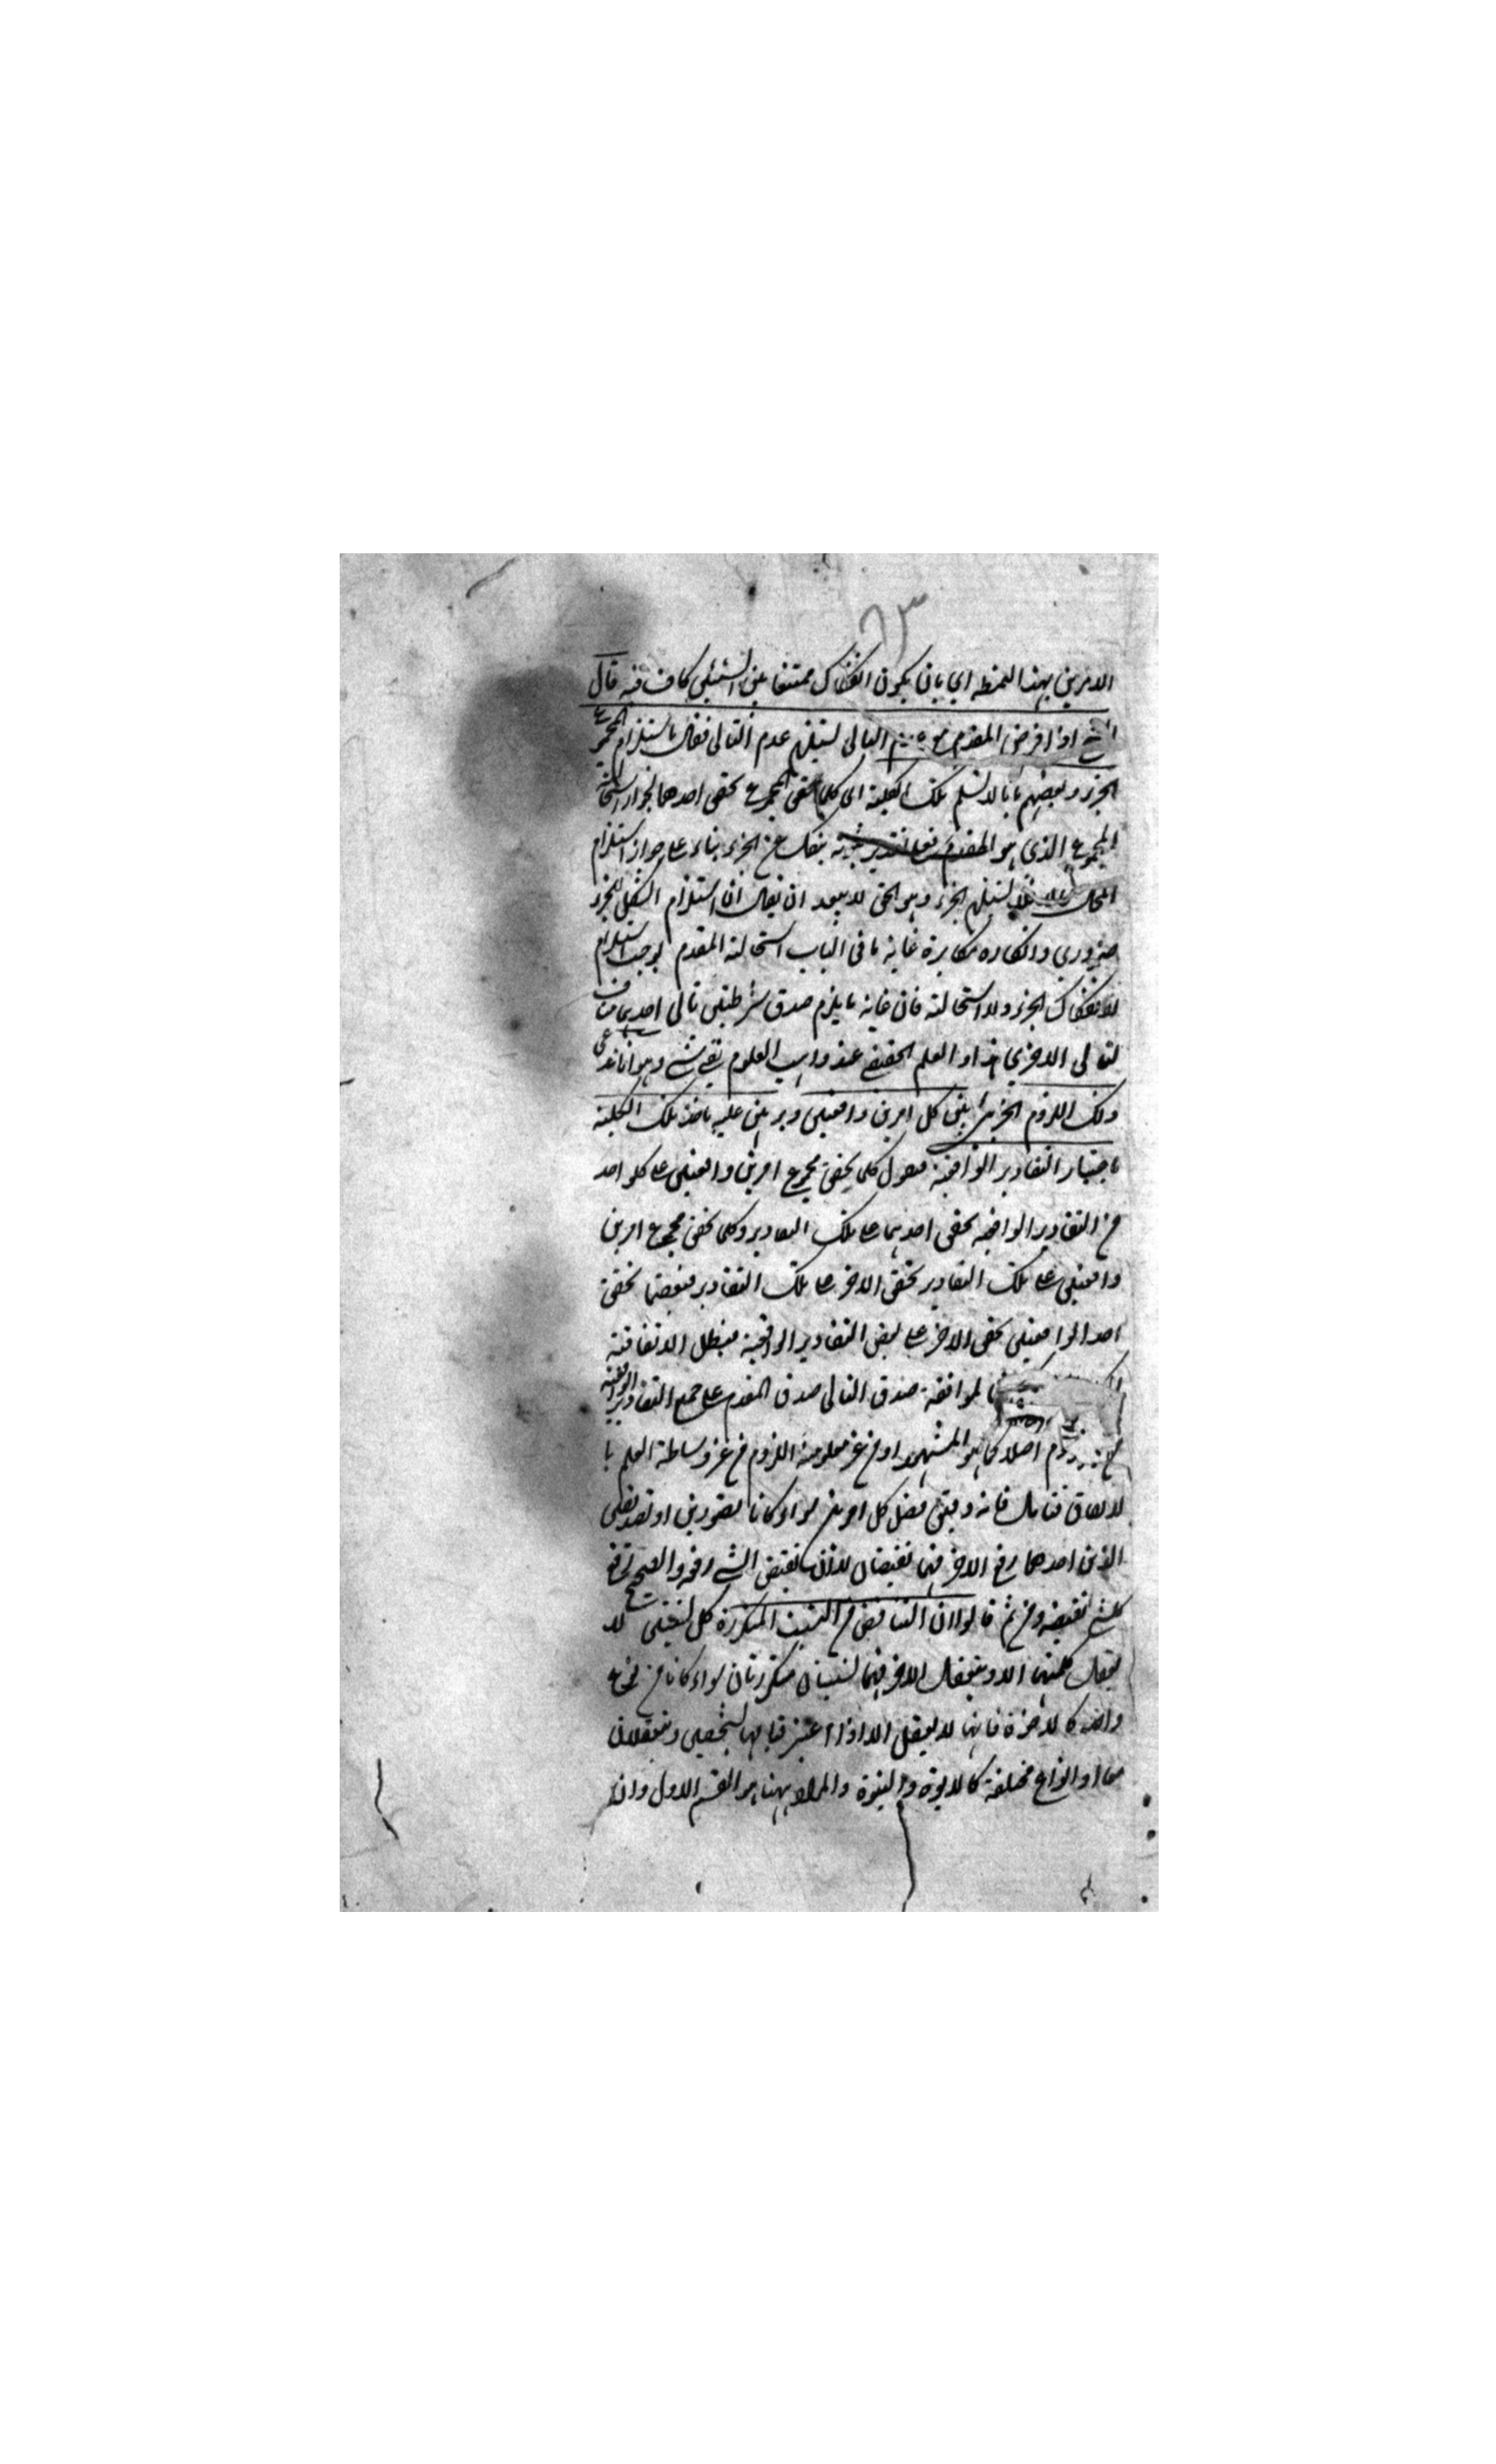 ٦٣
الامرين بهذا النمط اي بان يكون انفكاك ممتنعا بين الشيئين كاف فيه قال
اذا فرض المقدم مع التالي يستلزم عدم التالي فقال باستلزام المجموع
الجزء وبعضهم بانا لا نسلم تلك الكلية اي كلما تحقق المجموع تحقق احدهما لجواز استحالة
المجموع الذي هو المقدم فعلى تقدير ثبوته ينفك عن الجزء بناء على جواز استلزام
المحال فلا يستلزم الجزء وهو الحق لا يبعد ان يقال ان استلزام الكل للجزء
ضروري وانكاره مكابرة غاية ما في الباب استحالة المقدم يوجب استلزام
لانفكاك الجزء ولا استحالة فان غاية ما يلزم صدق شرطيتين تالي احديهما مناف
لتالي الاخرى او العلم الحقيقي عند واهب العلوم بقي شي وهو انا ندعي
ذلك اللزوم الجزئي بين كل امرين واقعيين وبرهن عليه باخذ تلك الكلية
باعتبار التقادير الواقعية فنقول كلما تحقق مجموع امرين واقعيين على كل واحد
من التقادير الواقعية تحقق احدهما على تلك التقادير وكلما تحقق مجموع امرين
واقعيين على تلك التقادير تحقق الاخر على تلك التقادير فبعضها تحقق
احد الواقعيين تحقق الاخر على بعض التقادير الواقعية فيبطل الاتفاقية
لموافقة صدق التالي صدق المقدم على جميع التقادير الواقعية
اصلا كما هو المشهور او من غير معلومية اللزوم من غير وساطة العلم با
لا تفاق فتامل فانه دقيق فصل كل امرين سواء كانا تصورين او تصديقين
الذين احدهما رفع الاخر فهما نقيضان لان نقيض الشي رفعه والصحيح رفع
كل شي نقيضه ومن ثم قالوا ان التناقض من النسب المتكررة كل نسبتين لا
يتعقل كلتيهما الا ويتعقل الاخر فهما نسبتان متكررتان سواء كانا من نوع
واحد كالاخوة فانها لا يعقل الا اذا اعتبر قيامها بشخصين ويتعقلان
معا او انواع مختلفة كالابوة والبنوة والمراد ههنا هو القسم الاول وان